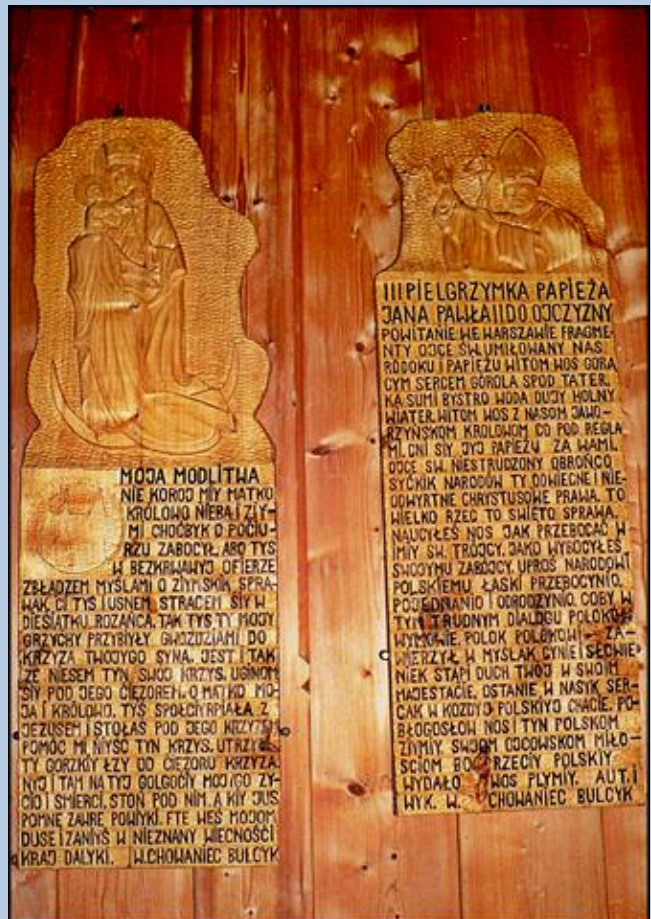 MOJA MODLITWA
NIE KOROJ MIY MATKO
KRÓLOWO NIEBA I ZIY-
MI CHOĆBYK O POĆIU-
RZU ZABOCYŁ, ABO TYS
W BEZKRWAWYJ OFIERZE
ZBŁĄDZEM MYŚLAMI O ZIYMSKIK SPRA-
WAK, CI TYS I USNEM, STRACEM SIY W
DIESIĄTKU, ROZAŃCA, TAK TYS TY MOJY
GRZYCHY PRZYBIYŁY GWOZDZIAMI DO
KRZYZA TWOJYGO SYNA. JEST I TAK
ZE NIESEM TYN SWOJ KRZYS, UGINOM
SIY POD JEGO CIĘZOREM. O MATKO MO-
JA I KRÓLOWO. TYŚ SPOŁCIYRPIAŁA Z
JEZUSEM I STOŁAS POD JEGO KRZYZEM
POMÓC MI NIYŚĆ TYN KRZYS. UTRZYJ
TY GORZKIY ŁZY OD CIĘZORU KRZYZA
NYJ I TAM NA TYJ GOLGOCIY MOJYGO ZY-
CIO I ŚMIERCI. STOŃ POD NIM. A KIY JUS
POMNE ZAWRE POWIYKI. FTE WEŚ MOJOM
DUSE I ZANIYŚ W NIEZNANY WIECNOŚCI
KRAJ DALYKI. W. CHOWANIEC BULCYK
III PIELGRZYMKA PAPIEŻA
JANA PAWŁA II DO OJCZYZNY
POWITANIE WE WARSZAWIE FRAGME-
NTY OJCE ŚW. UMIŁOWANY NAS
RODOKU I PAPIEŻU WITOM WOS GORĄ
CYM SERCEM GÓROLA SPOD TATER.
KA SUMI BYSTRO WODA DUJY HOLNY
WIATER. WITOM WOS Z NASOM JAWO-
RZYŃSKOM KROLOWOM CO POD REGLA
MI. CNI SIY JYJ PAPIEŻU ZA WAMI.
OJCE ŚW. NIESTRUDZONY OBROŃCO
SYĆKIK NARODÓW TY ODWIECNE I NIE-
ODWYRTNE CHRYSTUSOWE PRAWA. TO
WIELKO RZEC TO ŚWIETO SPRAWA.
NAUCYŁEŚ NOS JAK PRZEBOCAĆ W
IMIY ŚW. TRÓJCY. JAKO WYBOCYŁEŚ
SWOJYMU ZABÓJCY. UPROŚ NARODOWI
POLSKIEMU ŁASKI PRZEBOCYNIO.
POJEDNANIO I ODRODZYNIO. COBY W
TYM TRUDNYM DIALOGU POLOKÓW
WYMOWIE. POLOK POLOKOWI ZA-
WIERZYŁ W MYŚLAK CYNIE I SŁOWIE
NIEK STĄPI DUCH TWÓJ W SWOIM
MAJESTACIE. OSTANIE W NASYK SER-
CAK W KOZDYJ POLSKIYJ CHACIE. PO-
BŁOGOSŁÓW NOS I TYN POLSKOM
ZIYMIY SWOJOM OJCOWSKOM MIŁO-
ŚCIOM BO RZECIY POLSKIY
WYDAŁO WOS PLYMIY. AUT. I
WYK. W. CHOWANIEC BULCYK